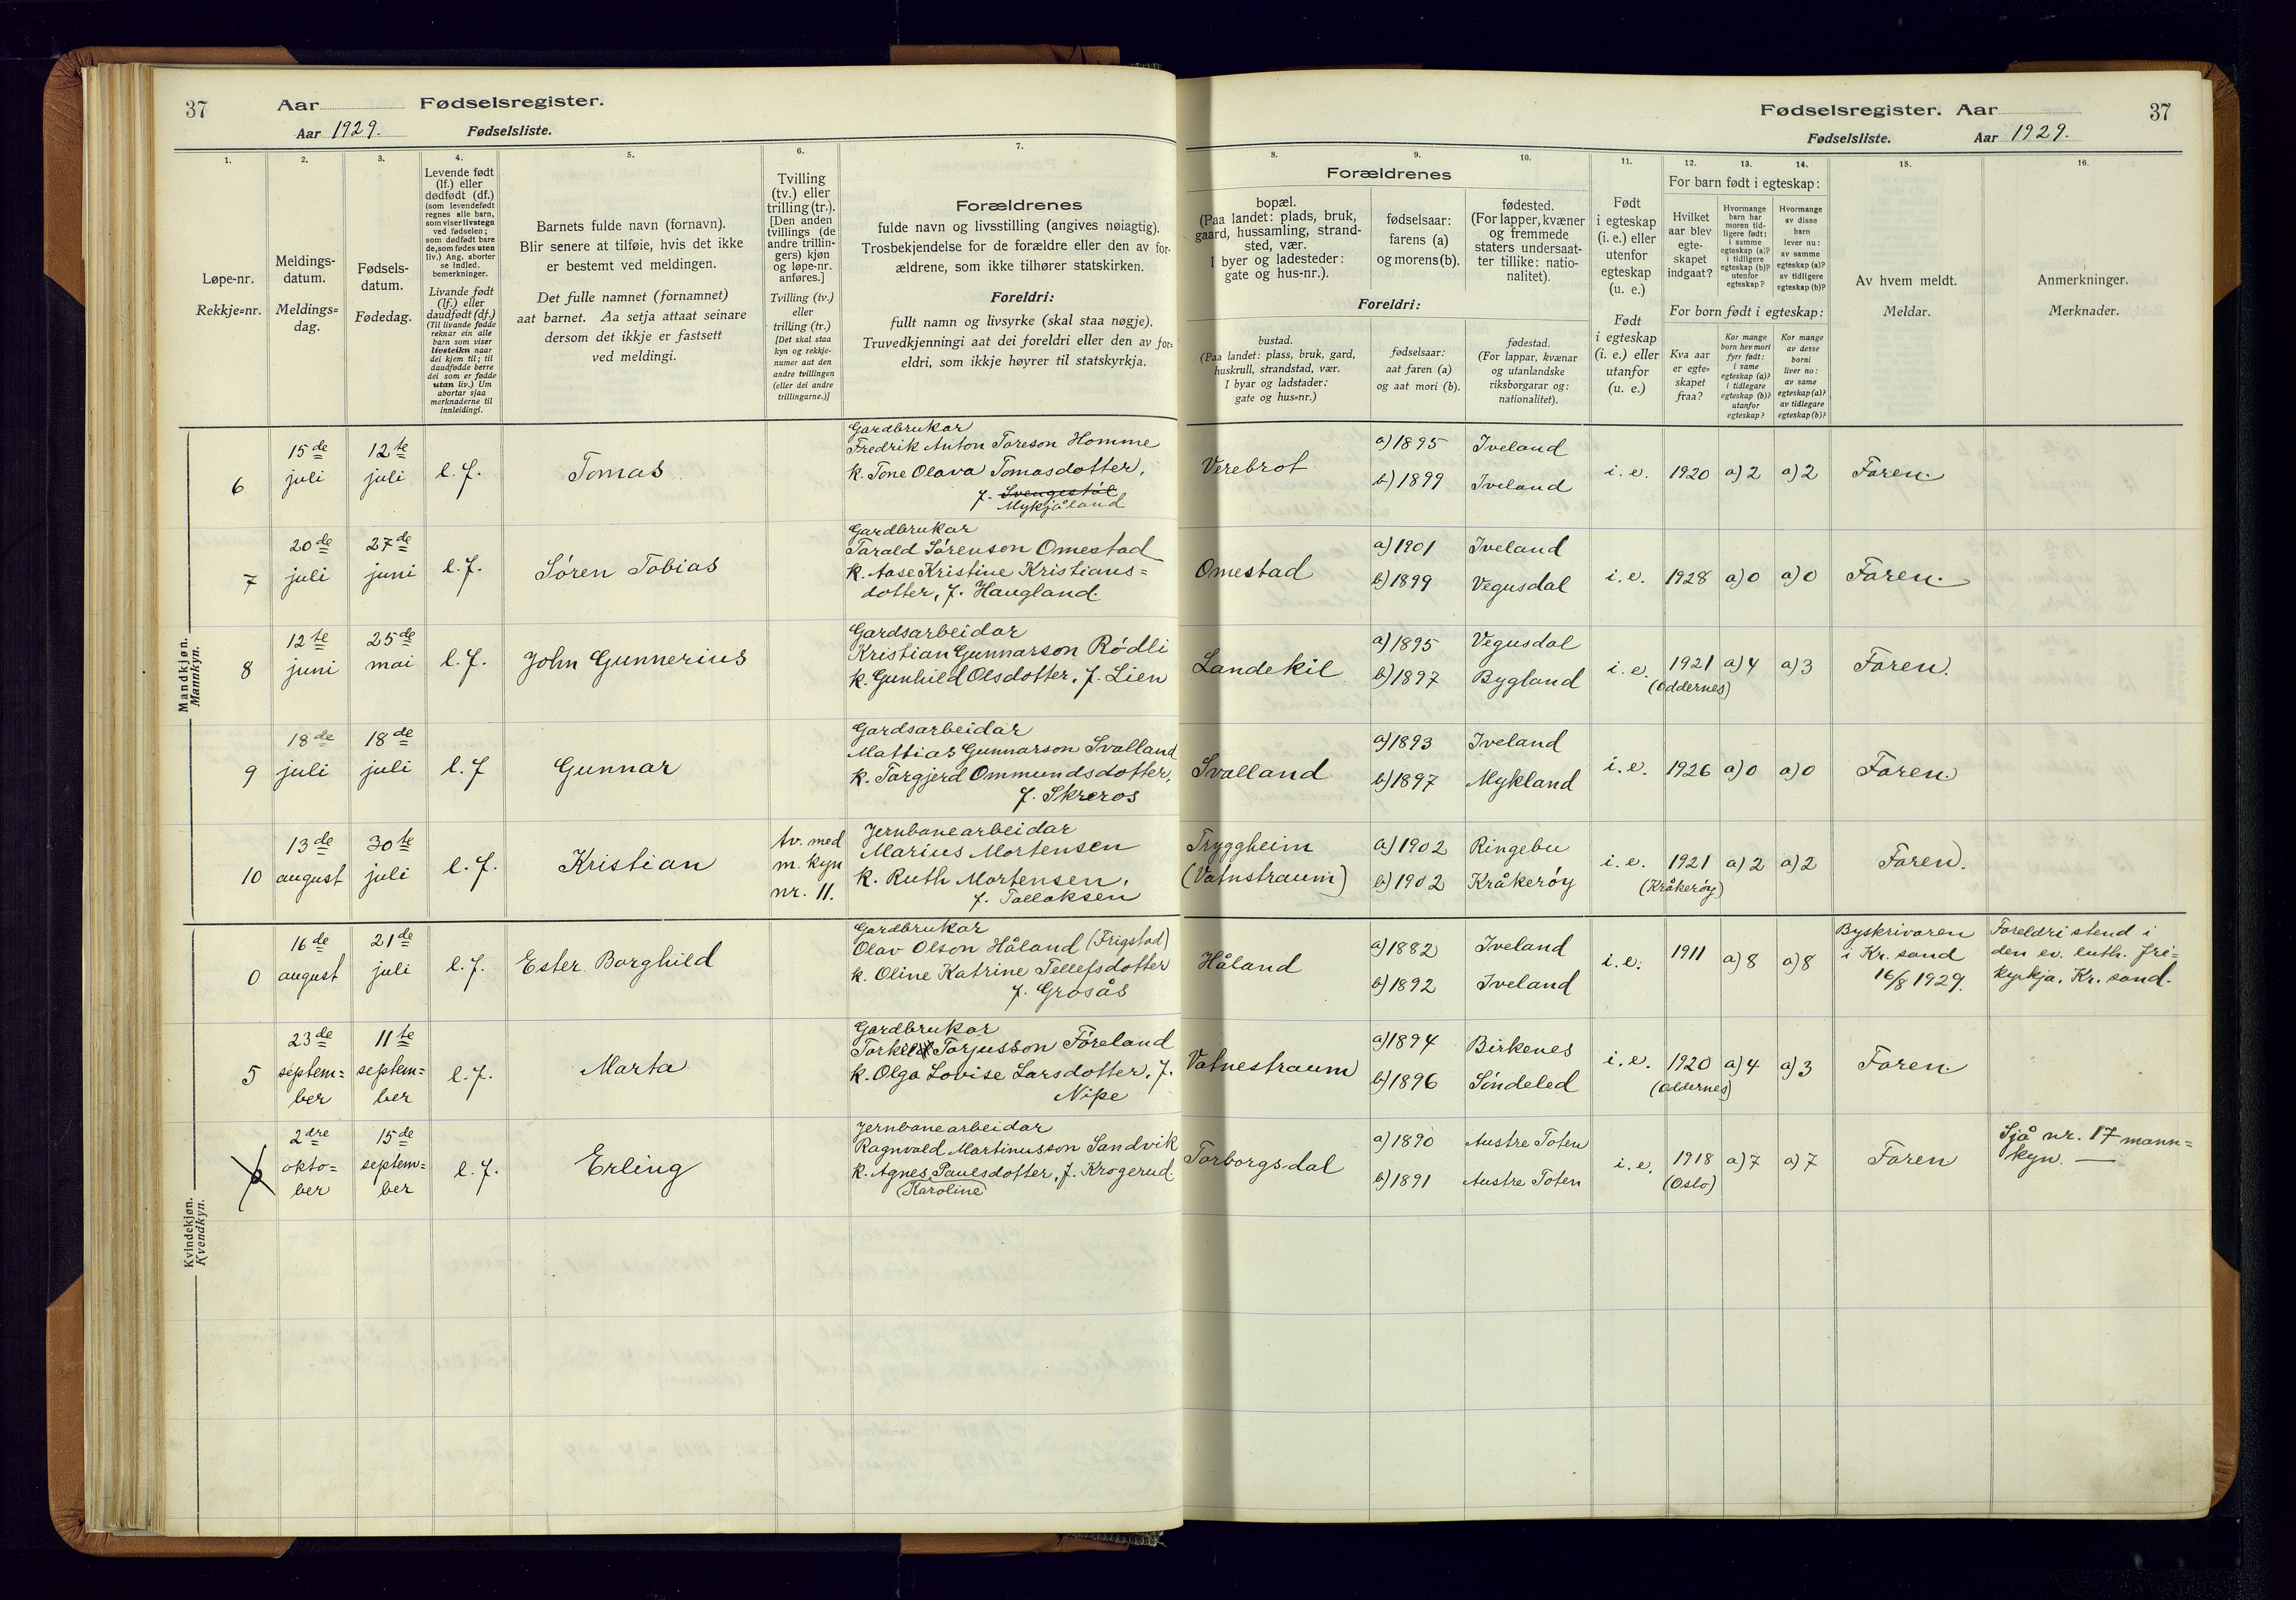 37
Aar
Fødselsregister.
Aar 1929.
Fødselsliste.
Fødselsregister. Aar
37
Fødselsliste.
Aar 1929.
1.
Løpe-nr.
Rekkje=nr.
2.
Meldings-
datum.
Meldings=
dag.
3.
Fødsels-
datum.
Fødedag.
4.
Levende født
(lf.) eller
dødfødt (df.)
(som levendefødt
regnes alle barn,
som viser livstegn
ved fødselen;
som dødfødt bare
de, som fødes uten
liv.) Ang. aborter
se indled.
bemerkninger.
Livande født
(lf.) eller
daudfødt (df.)
(Til livande fødde
reknar ein alle
barn som viser
livsteikn naar
dei kjem til; til
daudfødde berre
dei som er fødde
utan liv.) Um
abortar sjaa
merknaderne til
innleidingi.
5.
Barnets fulde navn (fornavn).
Blir senere at tilføie, hvis det ikke
er bestemt ved meldingen.
Det fulle namnet (fornamnet)
aat barnet. Aa setja attaat seinare
dersom det ikkje er fastsett
ved meldingi.
6.
Tvilling
(tv.) eller
trilling (tr.).
[Den anden
tvillings (de
andre trillin-
gers) kjøn
og løpe-nr.
anføres.]
Tvilling (tv.)
eller
trilling (tr.)
[Det skal staa
kyn og rekkje-
numer aat den
andre tvillingen
(eller dei andre
trillingarne.)]
7.
Forældrenes
fulde navn og livsstilling (angives nøiagtig).
Trosbekjendelse for de forældre eller den av for-
ældrene, som ikke tilhører statskirken.
Foreldri:
fullt namn og livsyrke (skal staa nøgje).
Truvedkjenningi aat dei foreldri eller den av for=
eldri, som ikkje høyrer til statskyrkja.
8.
Forældrenes
bopæl.
(Paa landet: plads, bruk,
gaard, hussamling, strand-
sted, vær.
I byer og ladesteder:
gate og hus-nr.).
Foreldri:
bustad.
(Paa landet: plass, bruk, gard,
huskrull, strandstad, vær.
I byar og ladstader:
gate og hus=nr.)
9.
fødselsaar:
farens (a)
og morens (b).
fødselsaar:
aat faren (a)
og aat mori (b).
10.
fødested.
(For lapper, kvæner
og fremmede
staters undersaat-
ter tillike: natio-
nalitet).
fødestad.
(For lappar, kvænar
og utanlandske
riksborgarar og:
nationalitet).
11.
Født
i egteskap
(i. e.) eller
utenfor
egteskap
(u. e.)
Født
i egteskap
(i. e.) eller
utanfor
(u. e.)
12.
13.
14.
For barn født i egteskap:
Hvilket
aar blev
egte-
skapet
indgaat?
Hvormange
barn har
moren tid-
ligere født:
i samme
egteskap (a)?
i tidligere
egteskap (b)?
utenfor
egteskap?
Hvormange
av disse
barn
lever nu:
av samme
egteskap (a)?
av tidligere
egteskap (b)?
For born født i egteskap:
Kva aar
er egte=
skapet
fraa?
Kor mange
born hev mori
fyrr født:
i same
egteskap (a)?
i tidlegare
egteskap (b)?
utanfor
egteskap?
Kor mange
av desse
borni
liver no:
av same
egteskap (a)?
av tidlegare
egteskap (b)?
15.
Av hvem meldt.
Meldar.
16.
Anmerkninger.
Merknader.
Mandkjøn.
Mannkyn.
6
15de
juli
12te
juli
l. f.
Tomas
Gardbrukar
Fredrik Anton Toreson Homme
k. Tone Olava Tomasdotter,
f. Svengestøl
Mykjåland
Verebrot
a) 1895
b) 1899
Iveland
Iveland
i. e.
1920
a) 2
a) 2
Faren.
7
20de
juli
27de
juni
l. f.
Søren Tobias
Gardbrukar
Tarald Sørenson Omestad
k. Aase Kristine Kristians=
dotter, f. Haugland.
Omestad
a) 1901
b) 1899
Iveland
Vegusdal
i. e.
1928
a) 0
a) 0
Faren.
8
12te
juni
25de
mai
l. f.
John Gunnerius
Gardsarbeidar
Kristian Gunnarson Rødli
k. Gunhild Olsdotter, f. Lien
Landekil
a) 1895
b) 1897
Vegusdal
Bygland
i. e.
1921
(Oddernes)
a) 4
a) 3
Faren.
9
18de
juli
18de
juli
l. f
Gunnar
Gardsarbeidar
Mattias Gunnarson Svalland
k. Targjerd Ommundsdotter,
f. Skreros
Svalland
a) 1893
b) 1897
Iveland
Mykland
i. e.
1926
a) 0
a) 0
Faren.
10
13de
august
30te
juli
l. f.
Kristian
tv. med
m. kyn
nr. 11.
Jernbanearbeidar
Marius Mortensen
k. Ruth Mortensen,
f. Tallaksen
Tryggheim
(Vatnstraum)
a) 1902
b) 1902
Ringebu
Kråkerøy
i. e.
1921
(Kråkerøy)
a) 2
a) 2
Faren.
Kvindekjøn.
Kvendkyn.
0
16de
august
21de
juli
l. f.
Ester Borghild
Gardbrukar
Olav Olson Håland (Frigstad)
k. Oline Katrine Tellefsdotter
f. Grosås
Håland
a) 1882
b) 1892
Iveland
Iveland
i. e.
1911
a) 8
a) 8
Byskrivaren
i Kr. sand
16/8 1929.
Foreldri stend i
den ev. luth. fri=
kyrkja. Kr. sand.
5
23de
septem=
ber
11te
septem=
ber
l. f.
Marta
Gardbrukar
Torkel Torjusson Føreland
k. Olga Lovise Larsdotter, f.
Nipe
Vatnestraum
a) 1894
b) 1896
Birkenes
Søndeled
i. e.
1920
(Oddernes)
a) 4
a) 3
Faren.
2dre
okto=
ber
15de
septem=
ber
l. f.
Erling
Jernbanearbeidar
Ragnvald Martinusson Sandvik
k. Agnes Paulsdotter, f. Krogerud.
(Karoline)
Torborgsdal
a) 1890
b) 1891
Austre Toten
Austre Toten
i. e.
1918
(Oslo)
a) 7
a) 7
Faren
Sjå nr. 17 mann=
kyn.